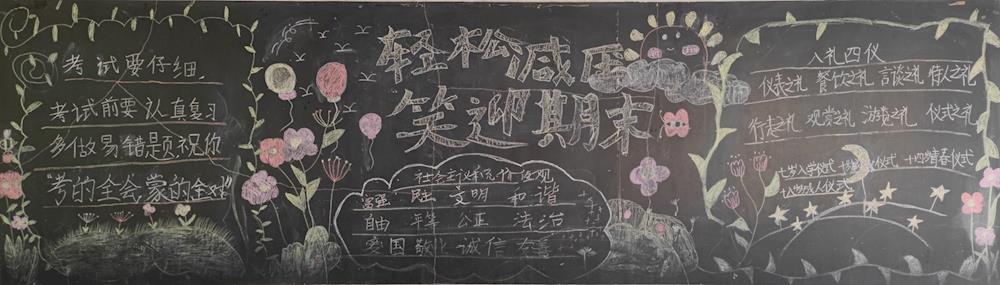 考试要仔细,
考试前要认真复习
多做易错题祝你
"考的全会蒙的全对"
轻松减压
笑迎期末
社会主义核心价值观
富强 民主 文明 和谐
自由 平等 公正 法治
爱国 敬业 诚信 友善
入礼四仪
仪表之礼 餐饮之礼 言谈之礼 待人之礼
行走之礼 观赏之礼 游览之礼 仪式之礼
七岁入学仪式 十岁成长仪式 十四岁青春仪式
十八岁成人仪式